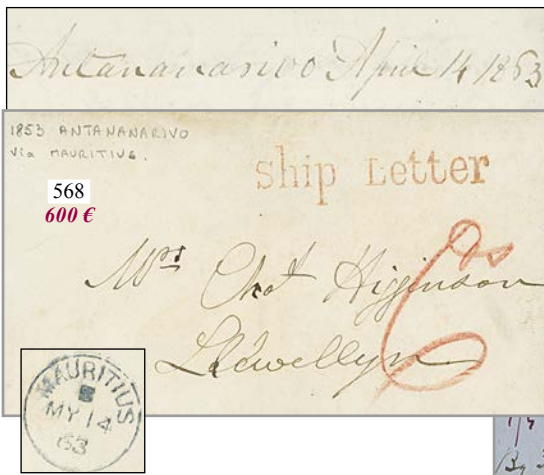 Antananarivo April 14 1863
1853 ANTANANARIVO
Via MAURITIUS.
Ship Letter
568
600 €
Mrs Chas Higinson
Llewellyn
MAURITIUS
MY 14
63